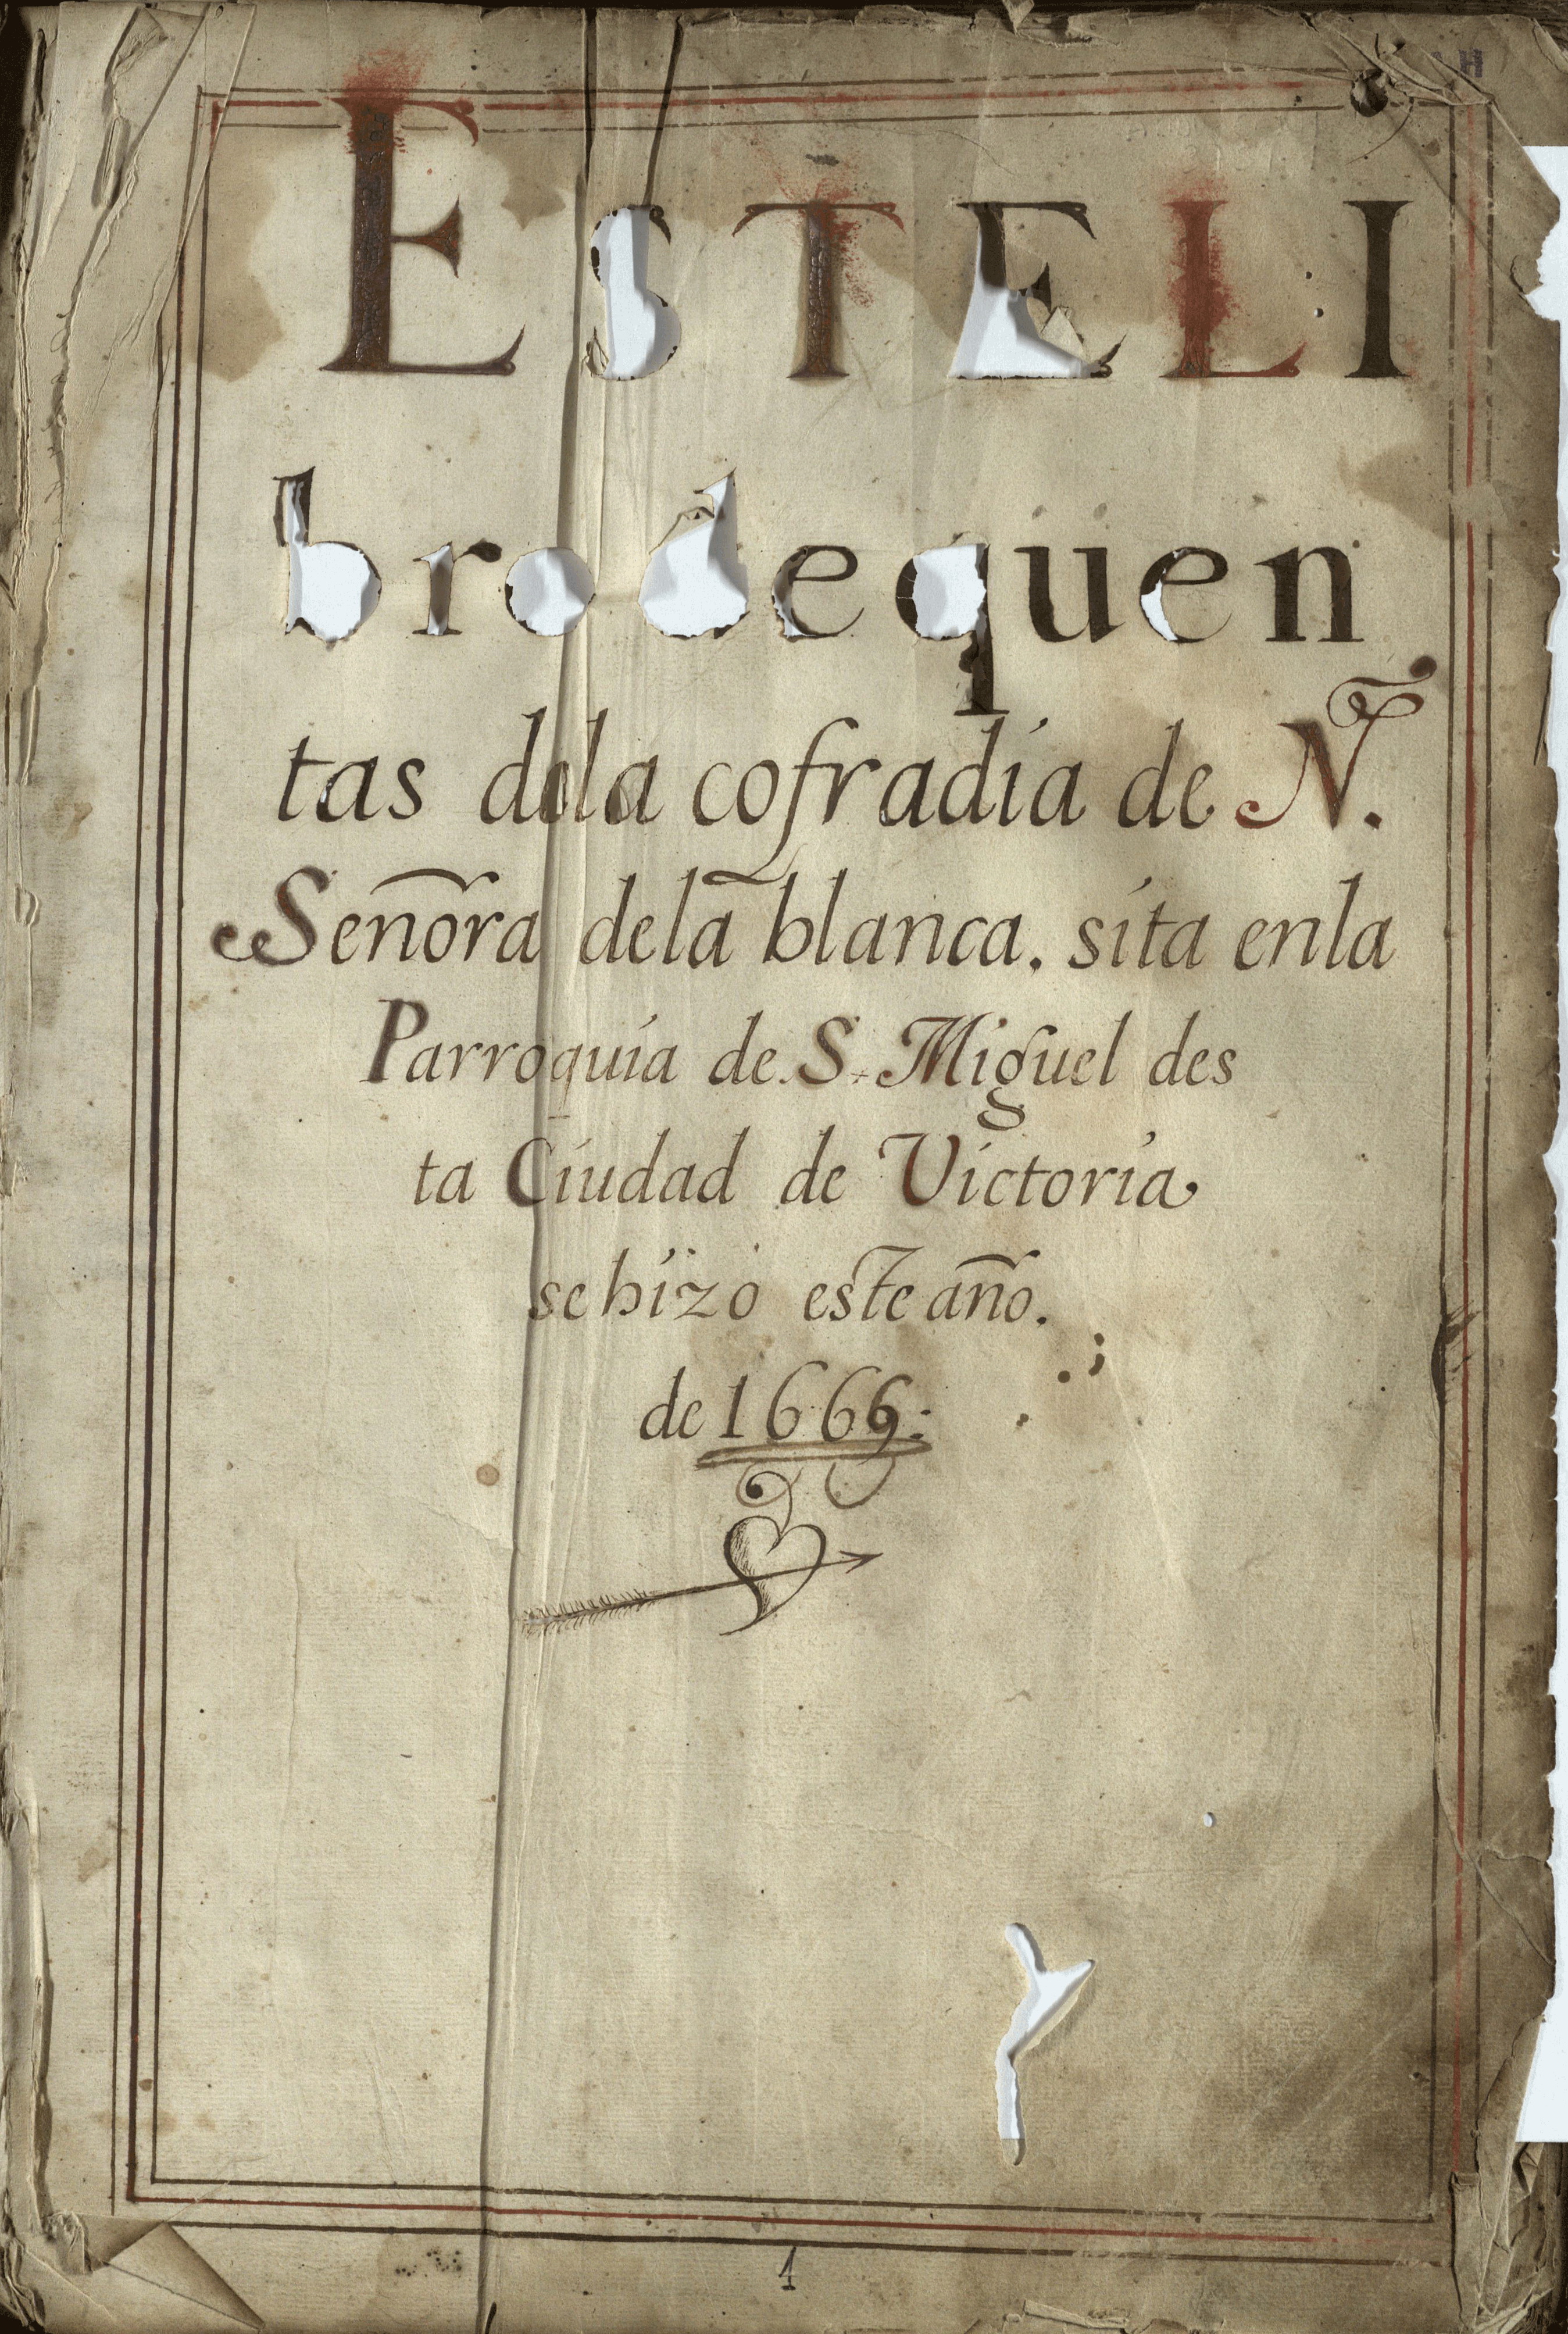 ESTELI
brodequen
tas dela cofradia de N.ª
Señora dela blanca. sita enla
Parroquia de. S. Miguel des
ta Ciudad de Victoria
se hizo este año.
de 1669:
1